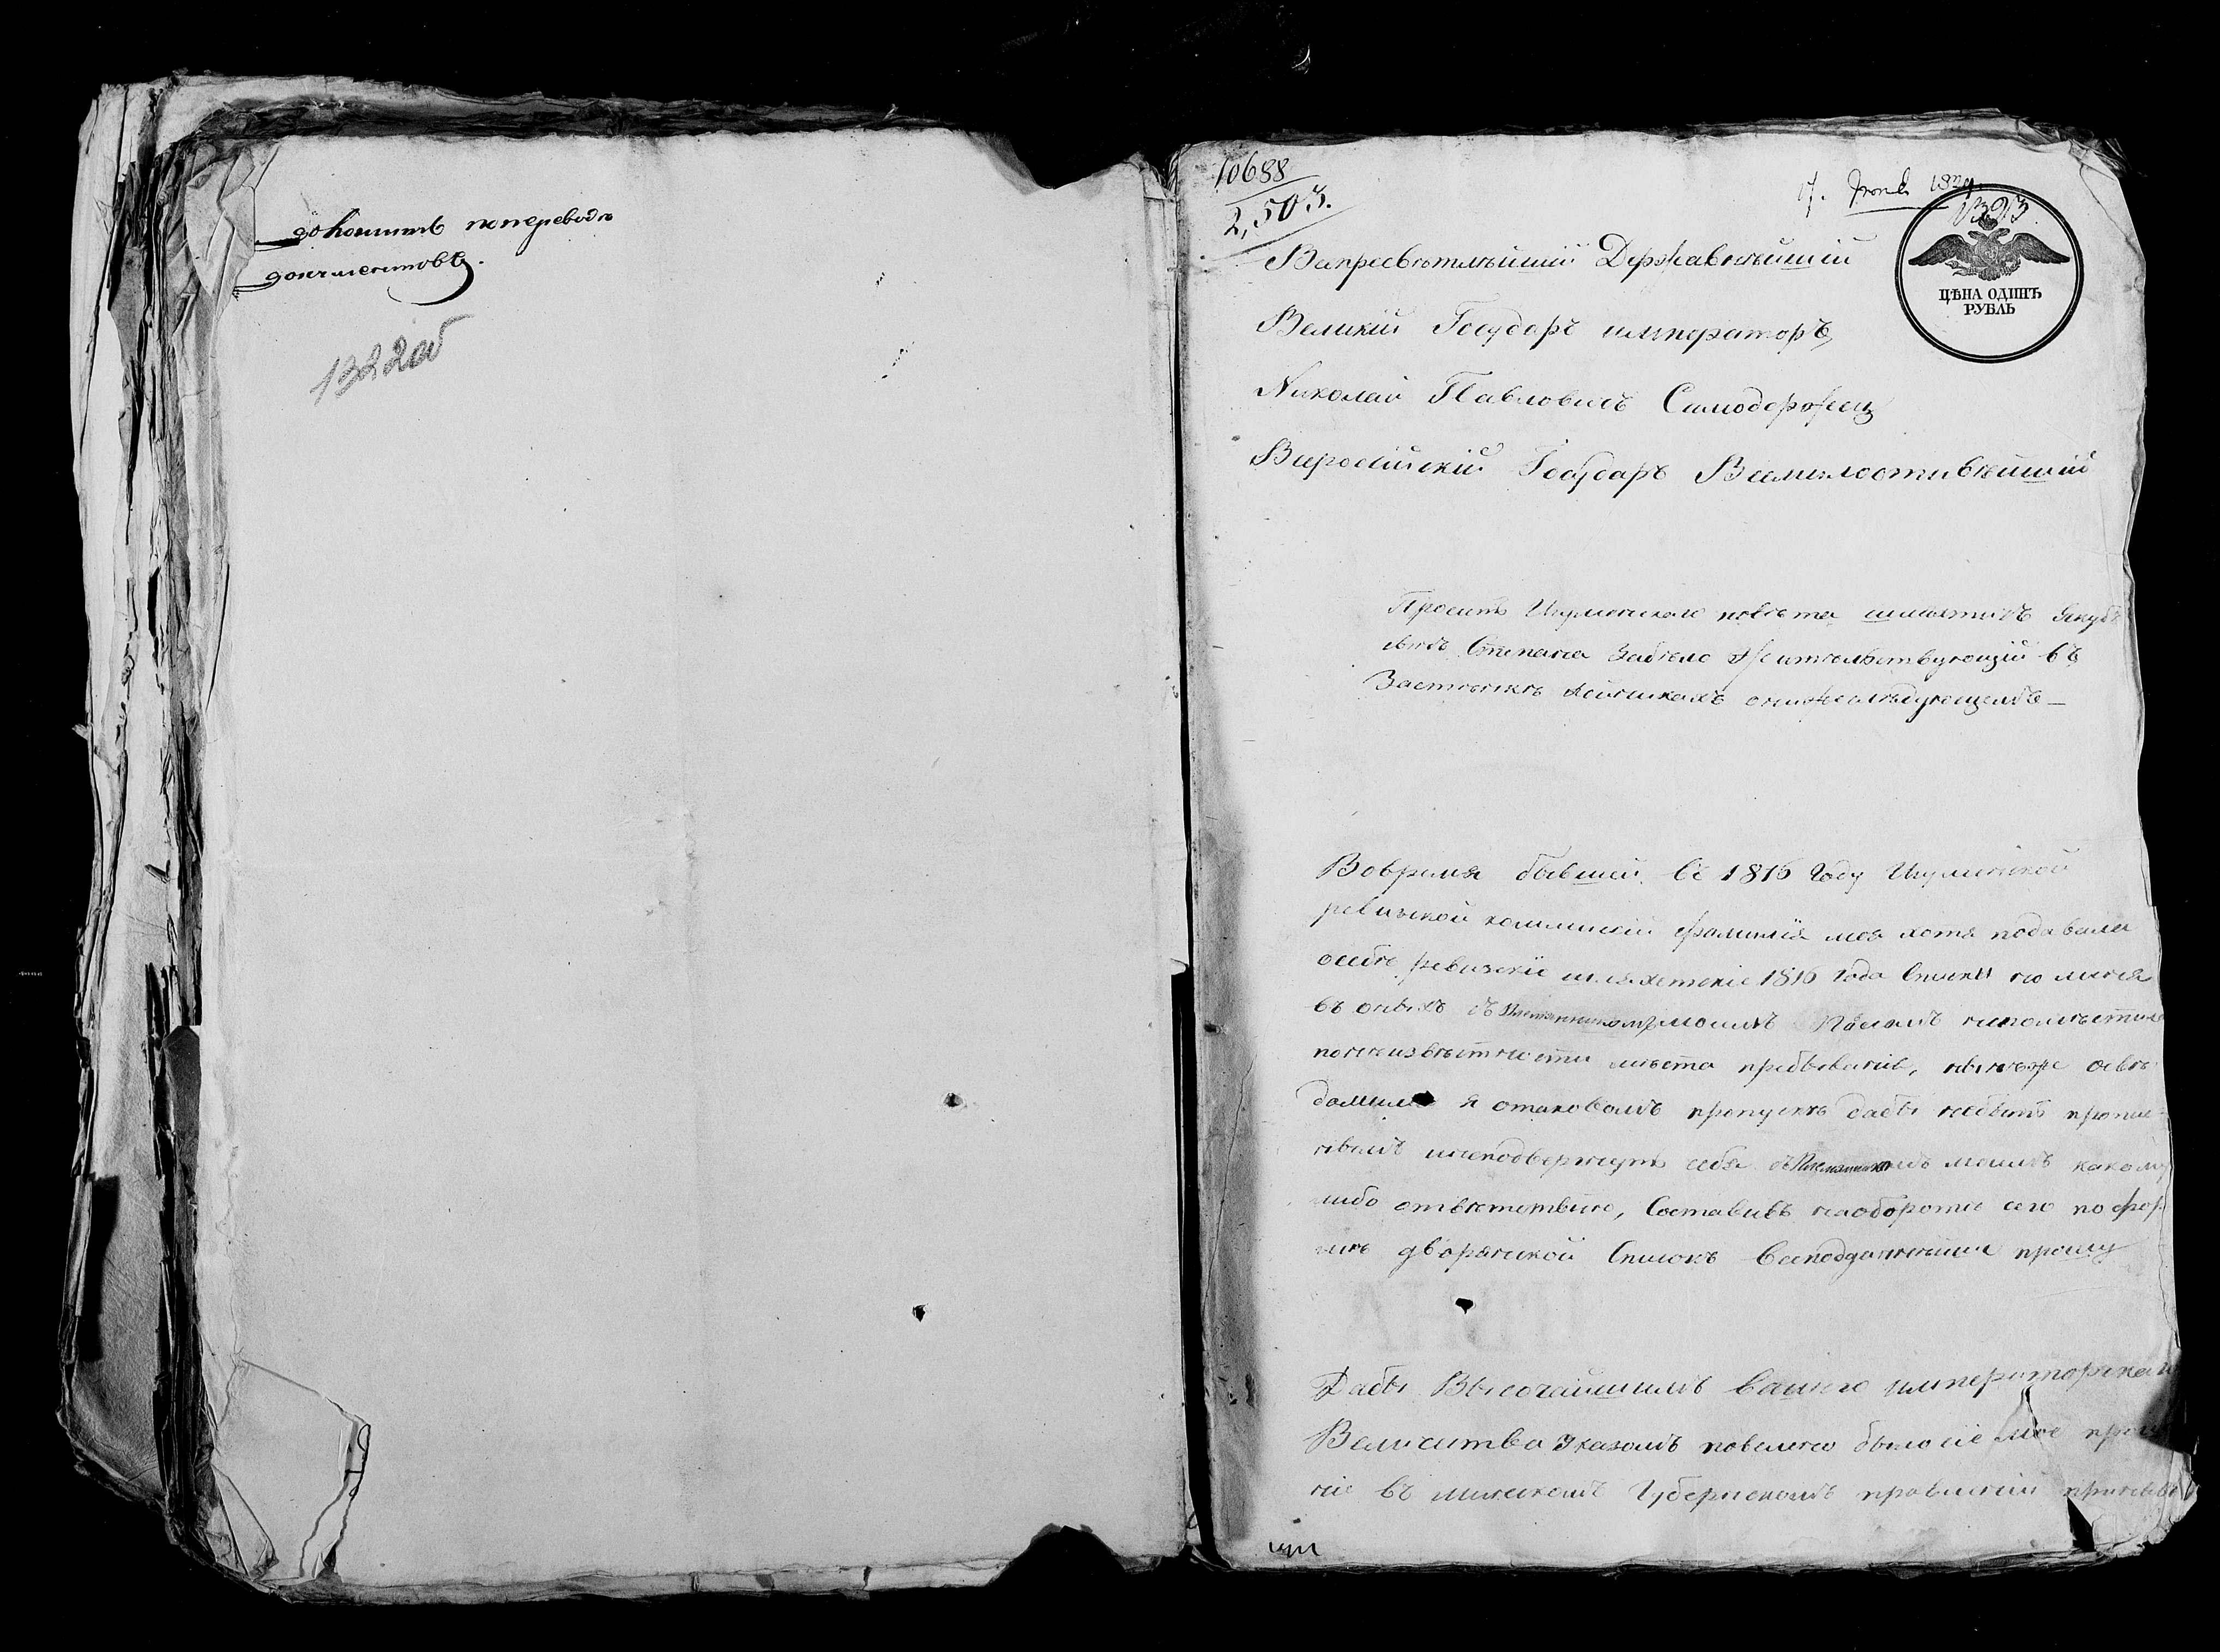 доложить попереводѣ
документовъ.
1322 об
10688
2,503.
17. Іюня 18
1323
ЦѢНА ОДИНЪ
РУБЛЬ
Всепресвѣтлѣйшій Державнѣйшій
Великій Государь императоръ,
Николай Павловичъ Самодержец
Всеросійскій Государь Всемилостивѣйшій
Проситъ Игуменскаго повѣта шляхтичъ Якубъ
сынъ Степана Забѣло жительствующій въ
Застѣнкѣ онижеслѣдующемъ—
Вовремя бывшей въ 1816 году Игуменской
ревизской комиминсіи фамилія моя хотя подавала
особѣ ревизскіе шляхетскіе 1816 года Списки но меня
въ оныхъ съ моимъ непомѣстила
понеизвѣстности мѣста пребыванія, нынѣже освѣ
домился я отаковомъ пропускѣ дабы небыть пропис
нымъ инеподвергнуть себя съ моимъ какому
либо отвѣтствію, Составивъ наоборотѣ сего по фор
мѣ дворянской Списокъ Всеподданнѣйше прошу
Дабы Высочайшимъ вашего императорскаго
Величества Указомъ повелено было сіе мое проше
ніе въ минскомъ Губернскомъ правленіи принявъ